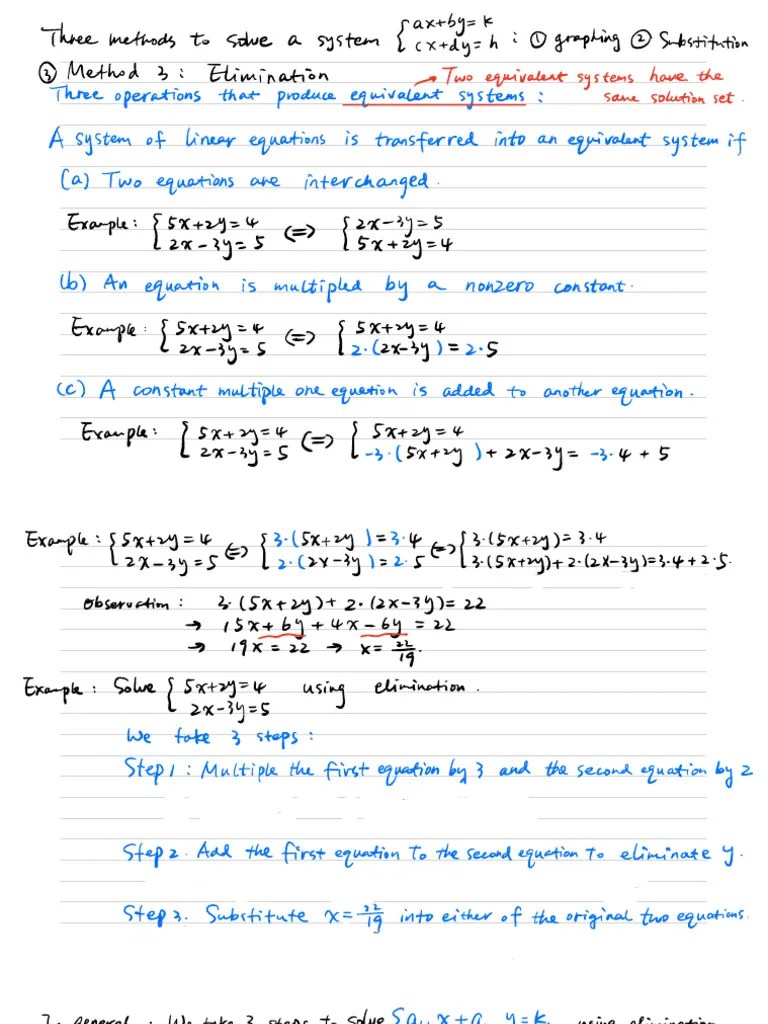 Three methods to solve a system { ax+by=k : ① graphing ② Substitution
cx+dy=h
③ Method 3 : Elimination → Two equivalent systems have the
Three operations that produce equivalent systems : same solution set.
A system of linear equations is transferred into an equivalent system if
(a) Two equations are interchanged.
Example: { 5x+2y=4 <=> { 2x-3y=5
2x-3y=5 5x+2y=4
(b) An equation is multipled by a nonzero constant.
Example: { 5x+2y=4 <=> { 5x+2y=4
2x-3y=5 2·(2x-3y) = 2·5
(c) A constant multiple one equation is added to another equation.
Example: { 5x+2y=4 <=> { 5x+2y=4
2x-3y=5 -3·(5x+2y) + 2x-3y = -3·4 + 5
Example: { 5x+2y=4 <=> { 3·(5x+2y) = 3·4 <=> { 3·(5x+2y)=3·4
2x-3y=5 2·(2x-3y) = 2·5 3·(5x+2y)+2·(2x-3y)=3·4+2·5.
observation : 3·(5x+2y)+2·(2x-3y)=22
→ 15x+6y+4x-6y = 22
→ 19x = 22 → x= 22/19.
Example : Solve { 5x+2y=4 using elimination.
2x-3y=5
We take 3 steps :
Step 1 : Multiple the first equation by 3 and the second equation by 2
Step 2. Add the first equation to the second equation to eliminate y.
Step 3. Substitute x= 22/19 into either of the original two equations.
general : We take 3 steps to solve using elimination